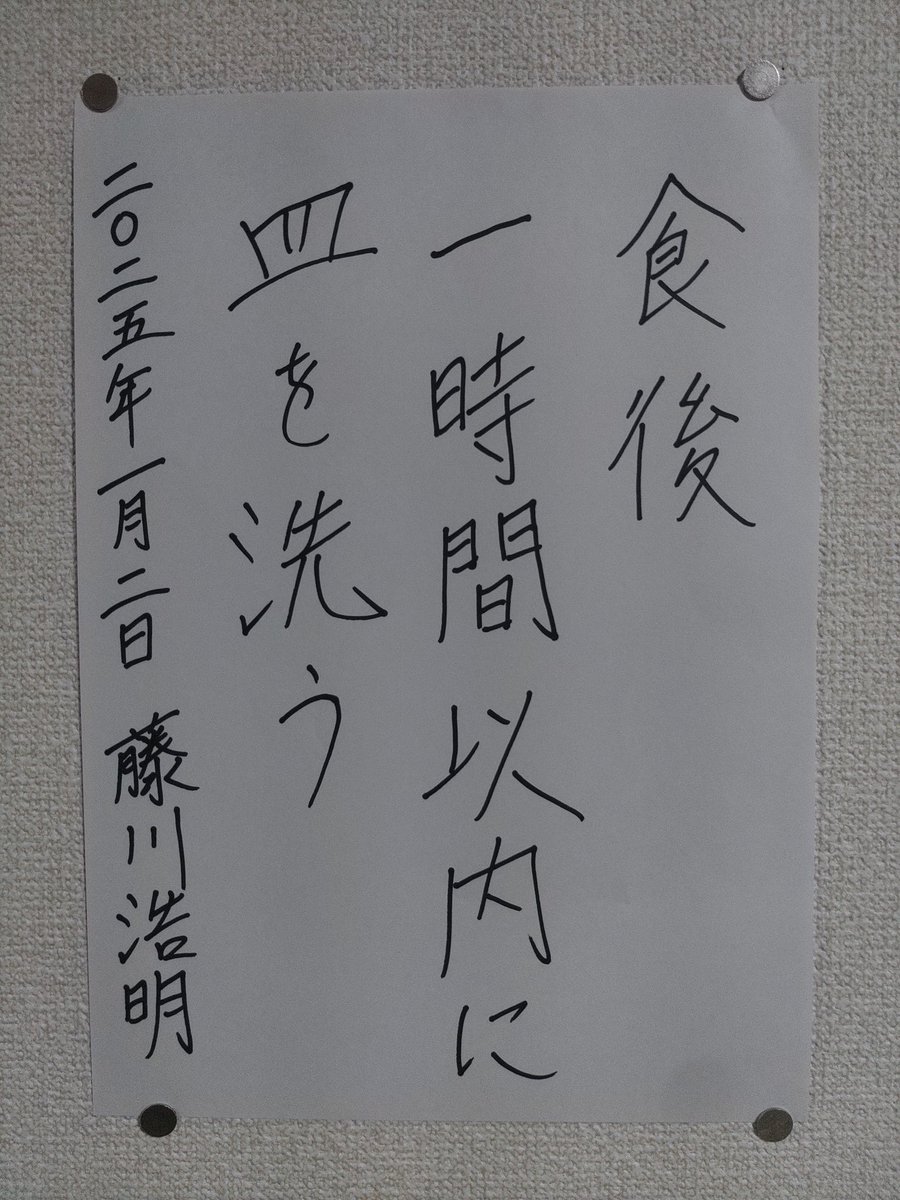 食後
一時間以内に
皿を洗う
二〇二五年一月二日 藤川浩明